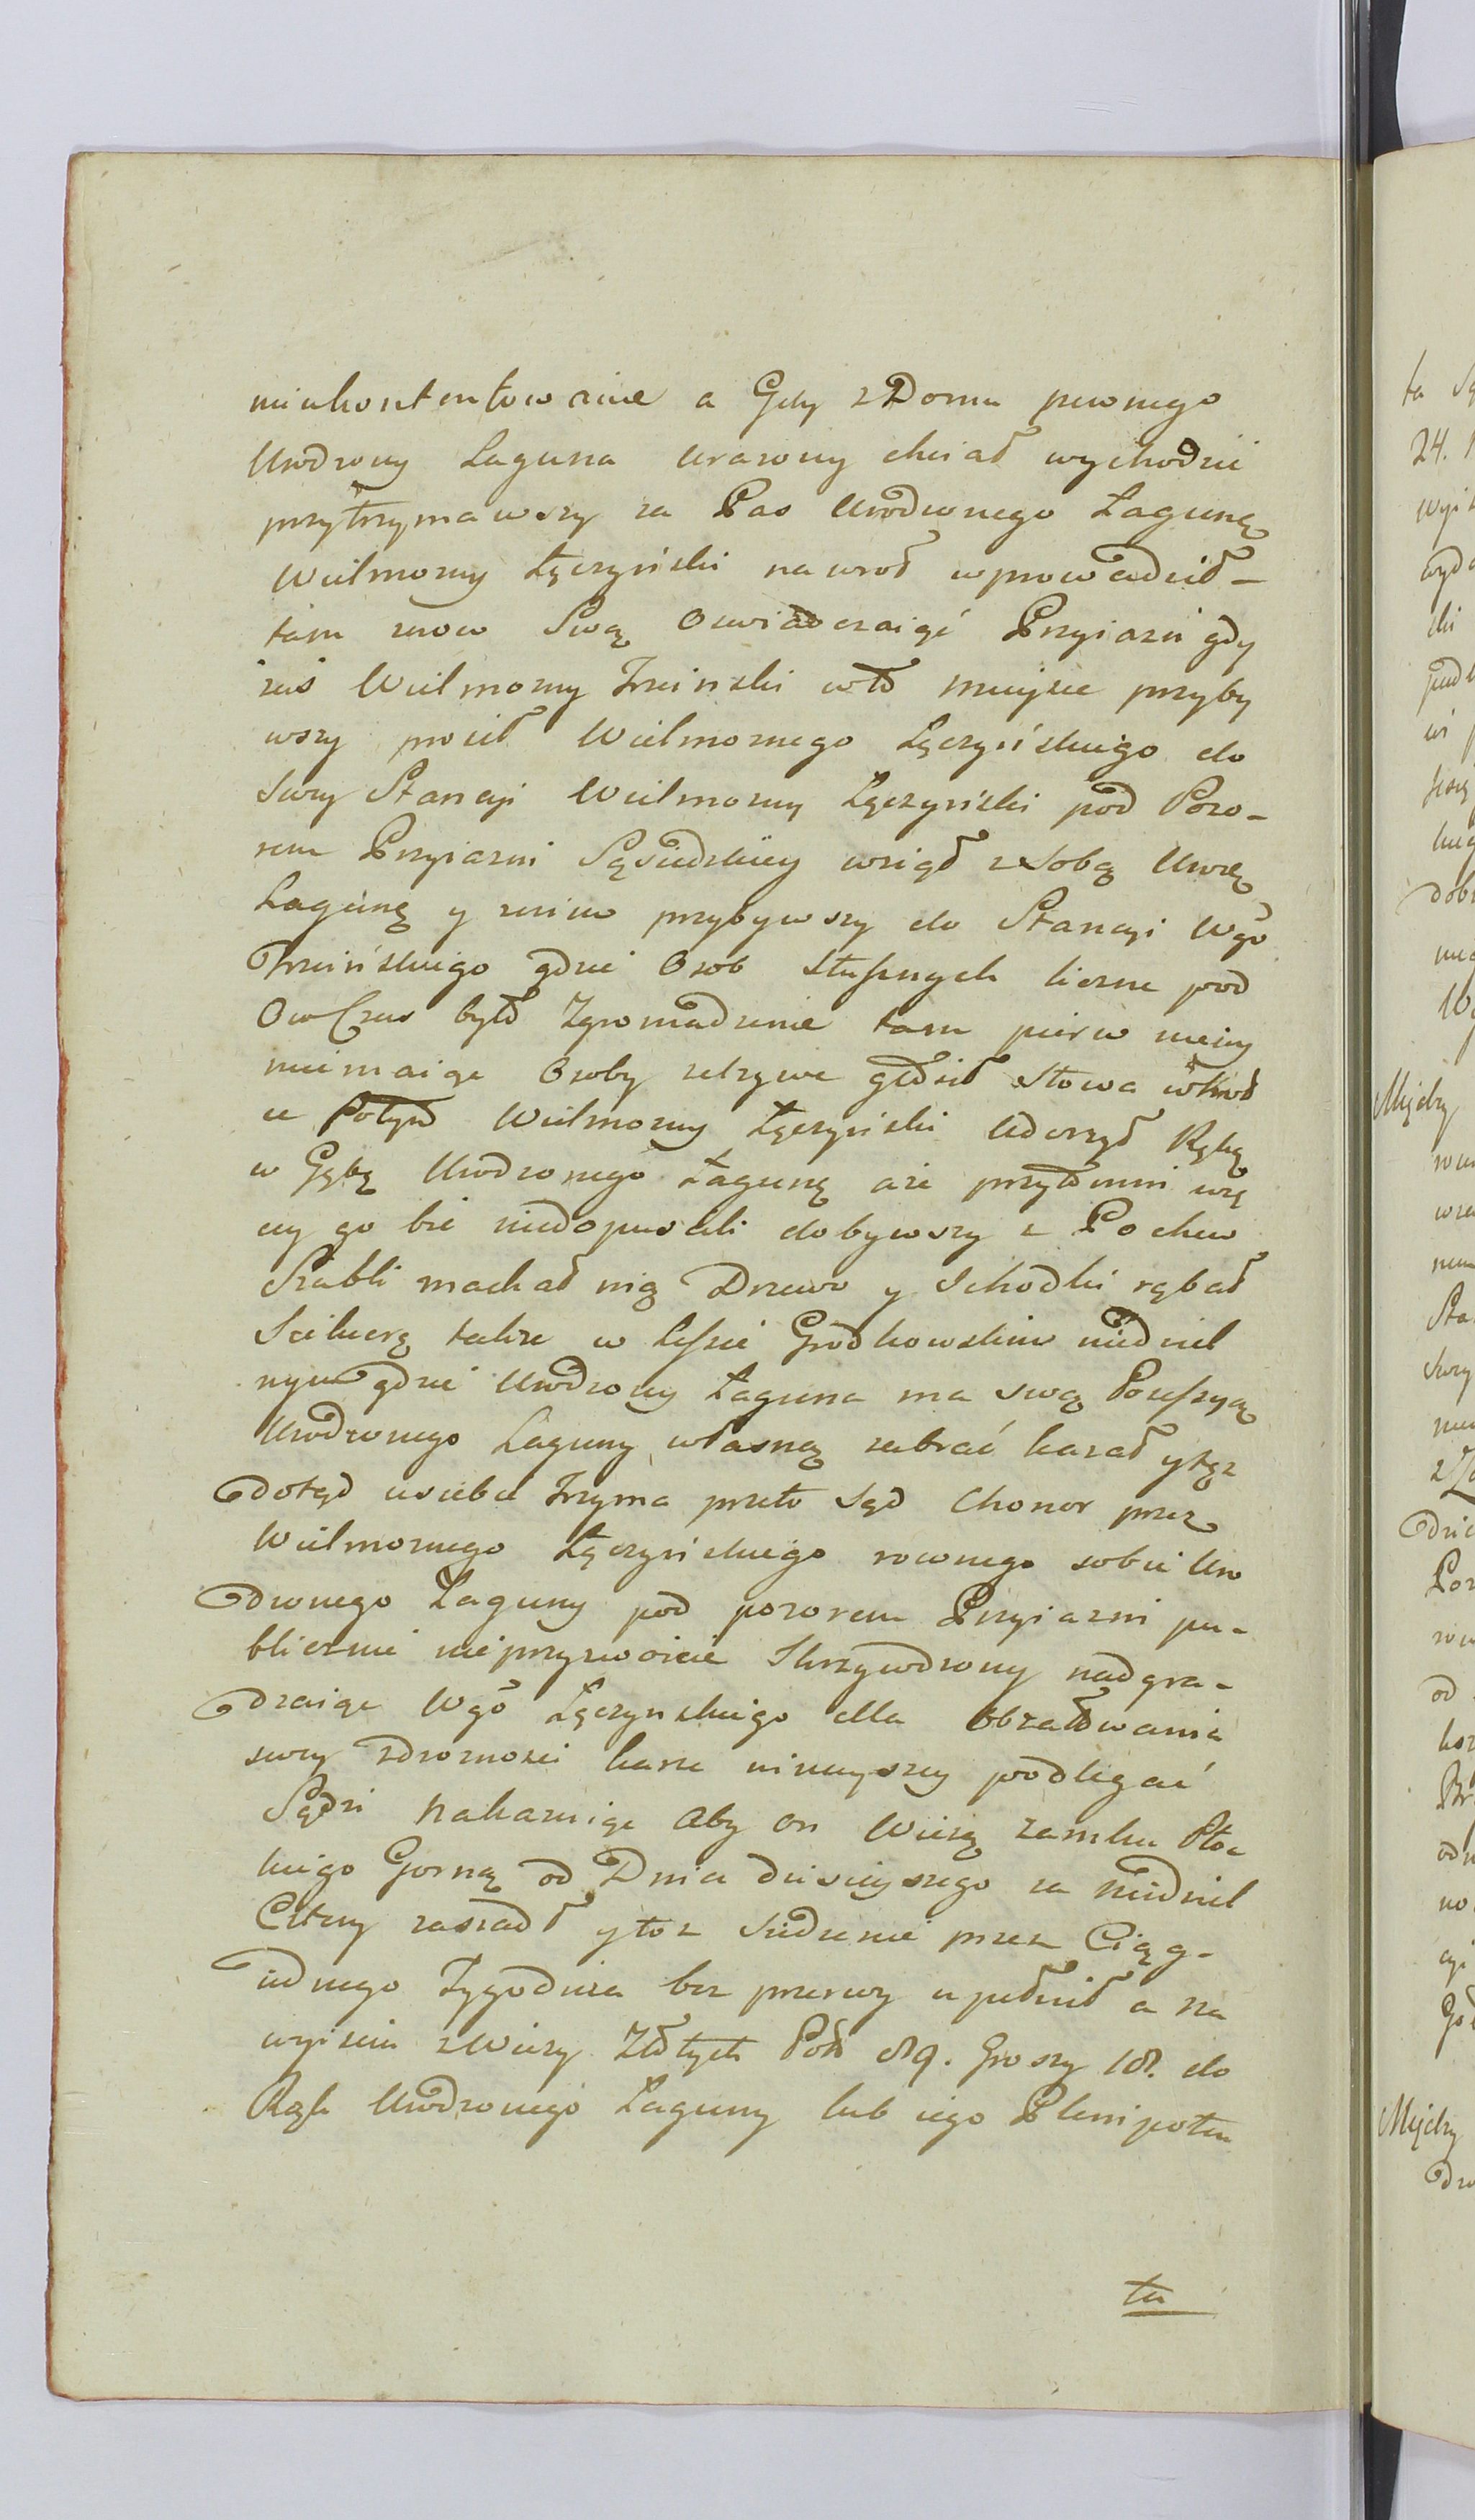 niekontentowanie a Gdy z Domu pewnego
Urodzony Laguna urazony chciał wychodzić
przytrzymawszy za Pas Urodzonego Lagunę
Wielmozny Łączyński nawrot wprowadził –
tam znow Swą Oswiadczaiąć Przyiazń gdy
zaś Wielmozny Trzcinski w to mieysce przyby
wszy prosił Wielmoznego Łączyńskiego do
swey Stancyi Wielmozny Łączyński pod Pozo-
rem Przyiazni Sąsiedzkiey wziął z Sobą Uro
Lagunę y z nim przybywszy do Stancyi Wgo
Trzcińskiego gdzie Osob słusznych liczne pod
Ow Czas było Zgromadzenie tam pierw mniey
nieimaiąc Osoby
a potym Wielmozny Łączyński Uderzył Ręką
w Gębę Urodzonego Łagunę aże przytomni wię
cy go bić niedopuscili dobywszy z Pochew
Szabli machał nią Drzewo y Schodki rąbał
Siekierę także w Lesie Grodkowskim niedziel
nym gdzie Urodzony Łaguna ma swą Possessyą
Urodzonego Laguny własną zabrać kazał y tęz
dotąd u siebie Trzyma przeto Sąd Chonor przez
Wielmoznego Łączyńskiego rownego sobie Uro
dzonego Laguny pod pozorem Przyiazni pu-
blicznie nieprzyzwoicie Skrzywdzony nadgra-
dzaiąc Wgo Łączynskiego dla obżałowania
swey zdrozności karze ninieyszey podlegać
Sądzi Nakazuiąc Aby on Wieżę zamku Płoc
kiego Gorną od Dnia dzisieyszego za Niedziel
Cztery zasiadł y toz siedzenie przez Ciąg-
iednego Tygodnia bez przerwy wypełnił a na
wyisciu z Wieży Złotych Pols 89. Groszy 18. do
Rąk Urodzonego Laguny lub iego Plenipoten
ta